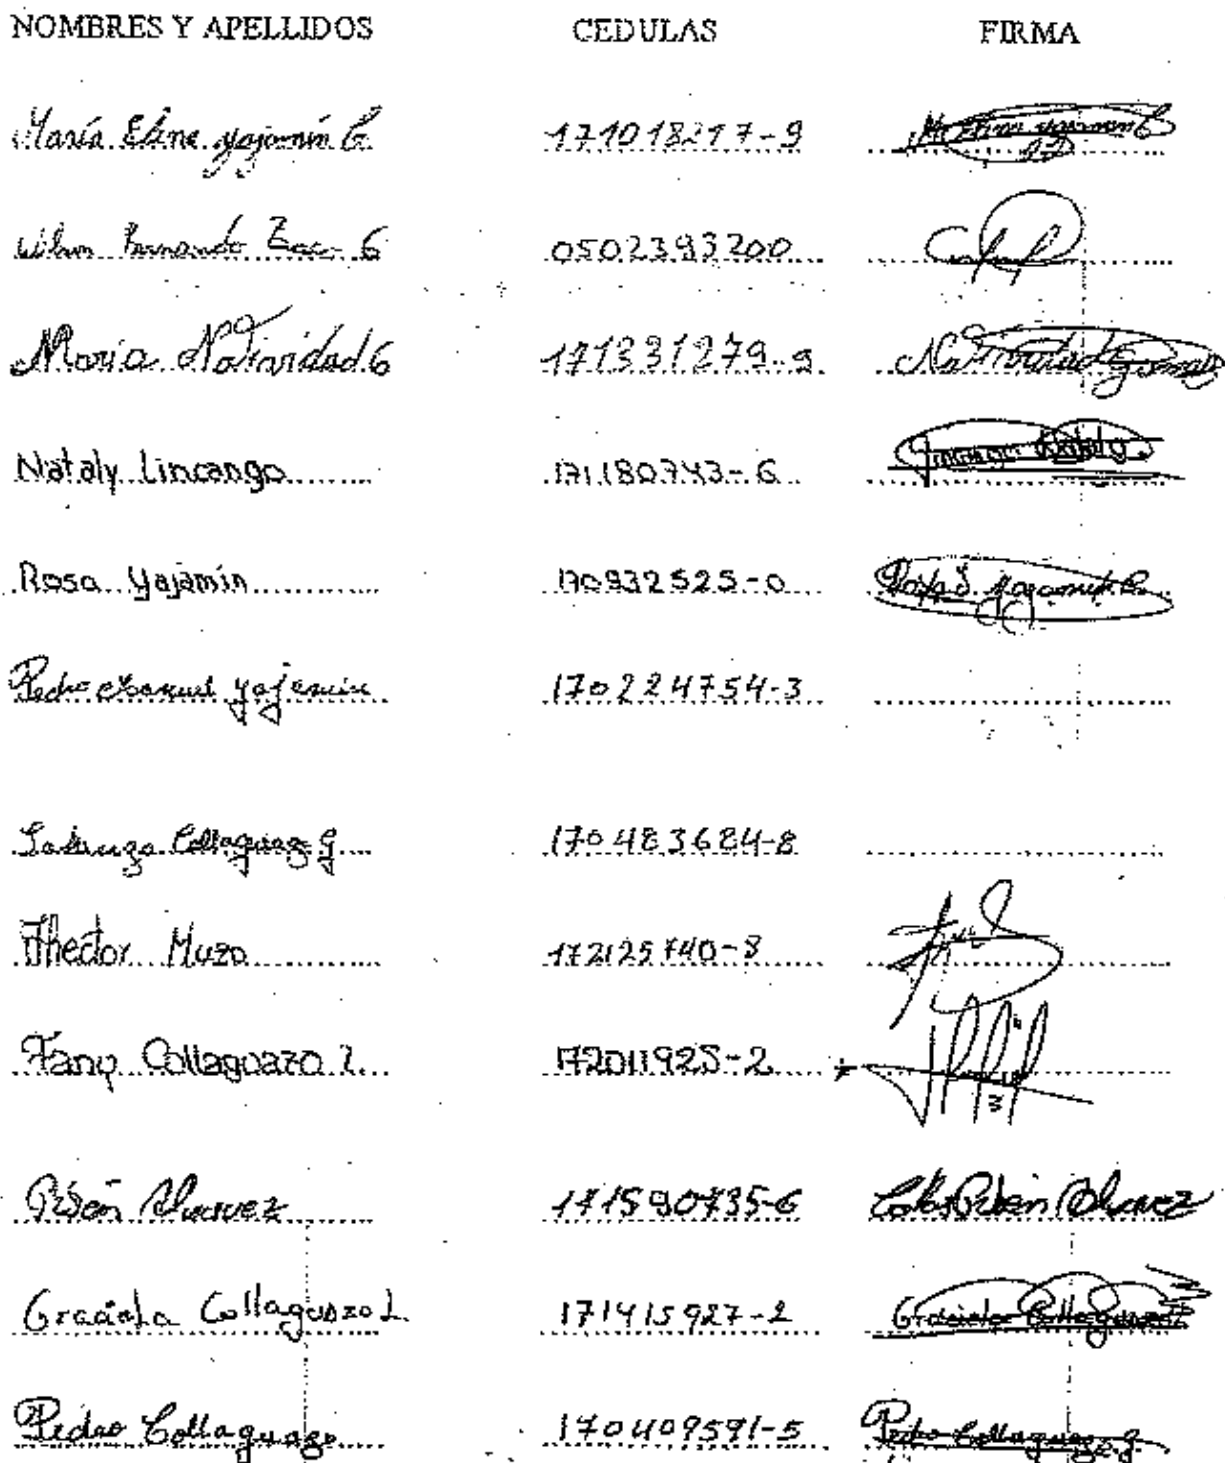 NOMBRES Y APELLIDOS CEDULAS FIRMA
María Eline yajamín C. 171018217-9
Wilson Fernando G 0502393200
María Natividad G 171331279-9 Natividad Gomez
Nataly Lincango 171180743-6 Nataly
Rosa Yajamín 170932525-0 Rosa Yajamín C.
Pedro Manuel yajamín 170224754-3
Collaguazo G 170483684-8
Hector Muzo 172125740-8
Fany Collaguazo L. 172011925-2
Rubén Alvarez 171590735-6 Carlos Rubén Alvarez
Graciela Collaguazo L. 171415927-2 Graciela Collaguazo
Pedro Collaguazo 170409591-5 Pedro Collaguazo G.